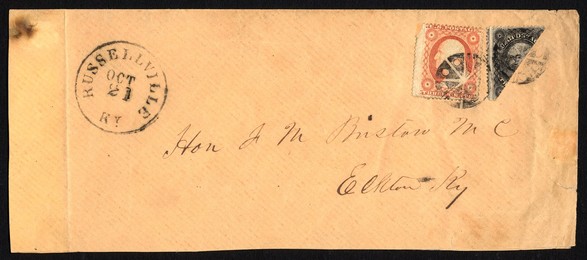 RUSSELLVILLE
OCT
21
KY
Hon J M Bristow M C
Elkton Ky